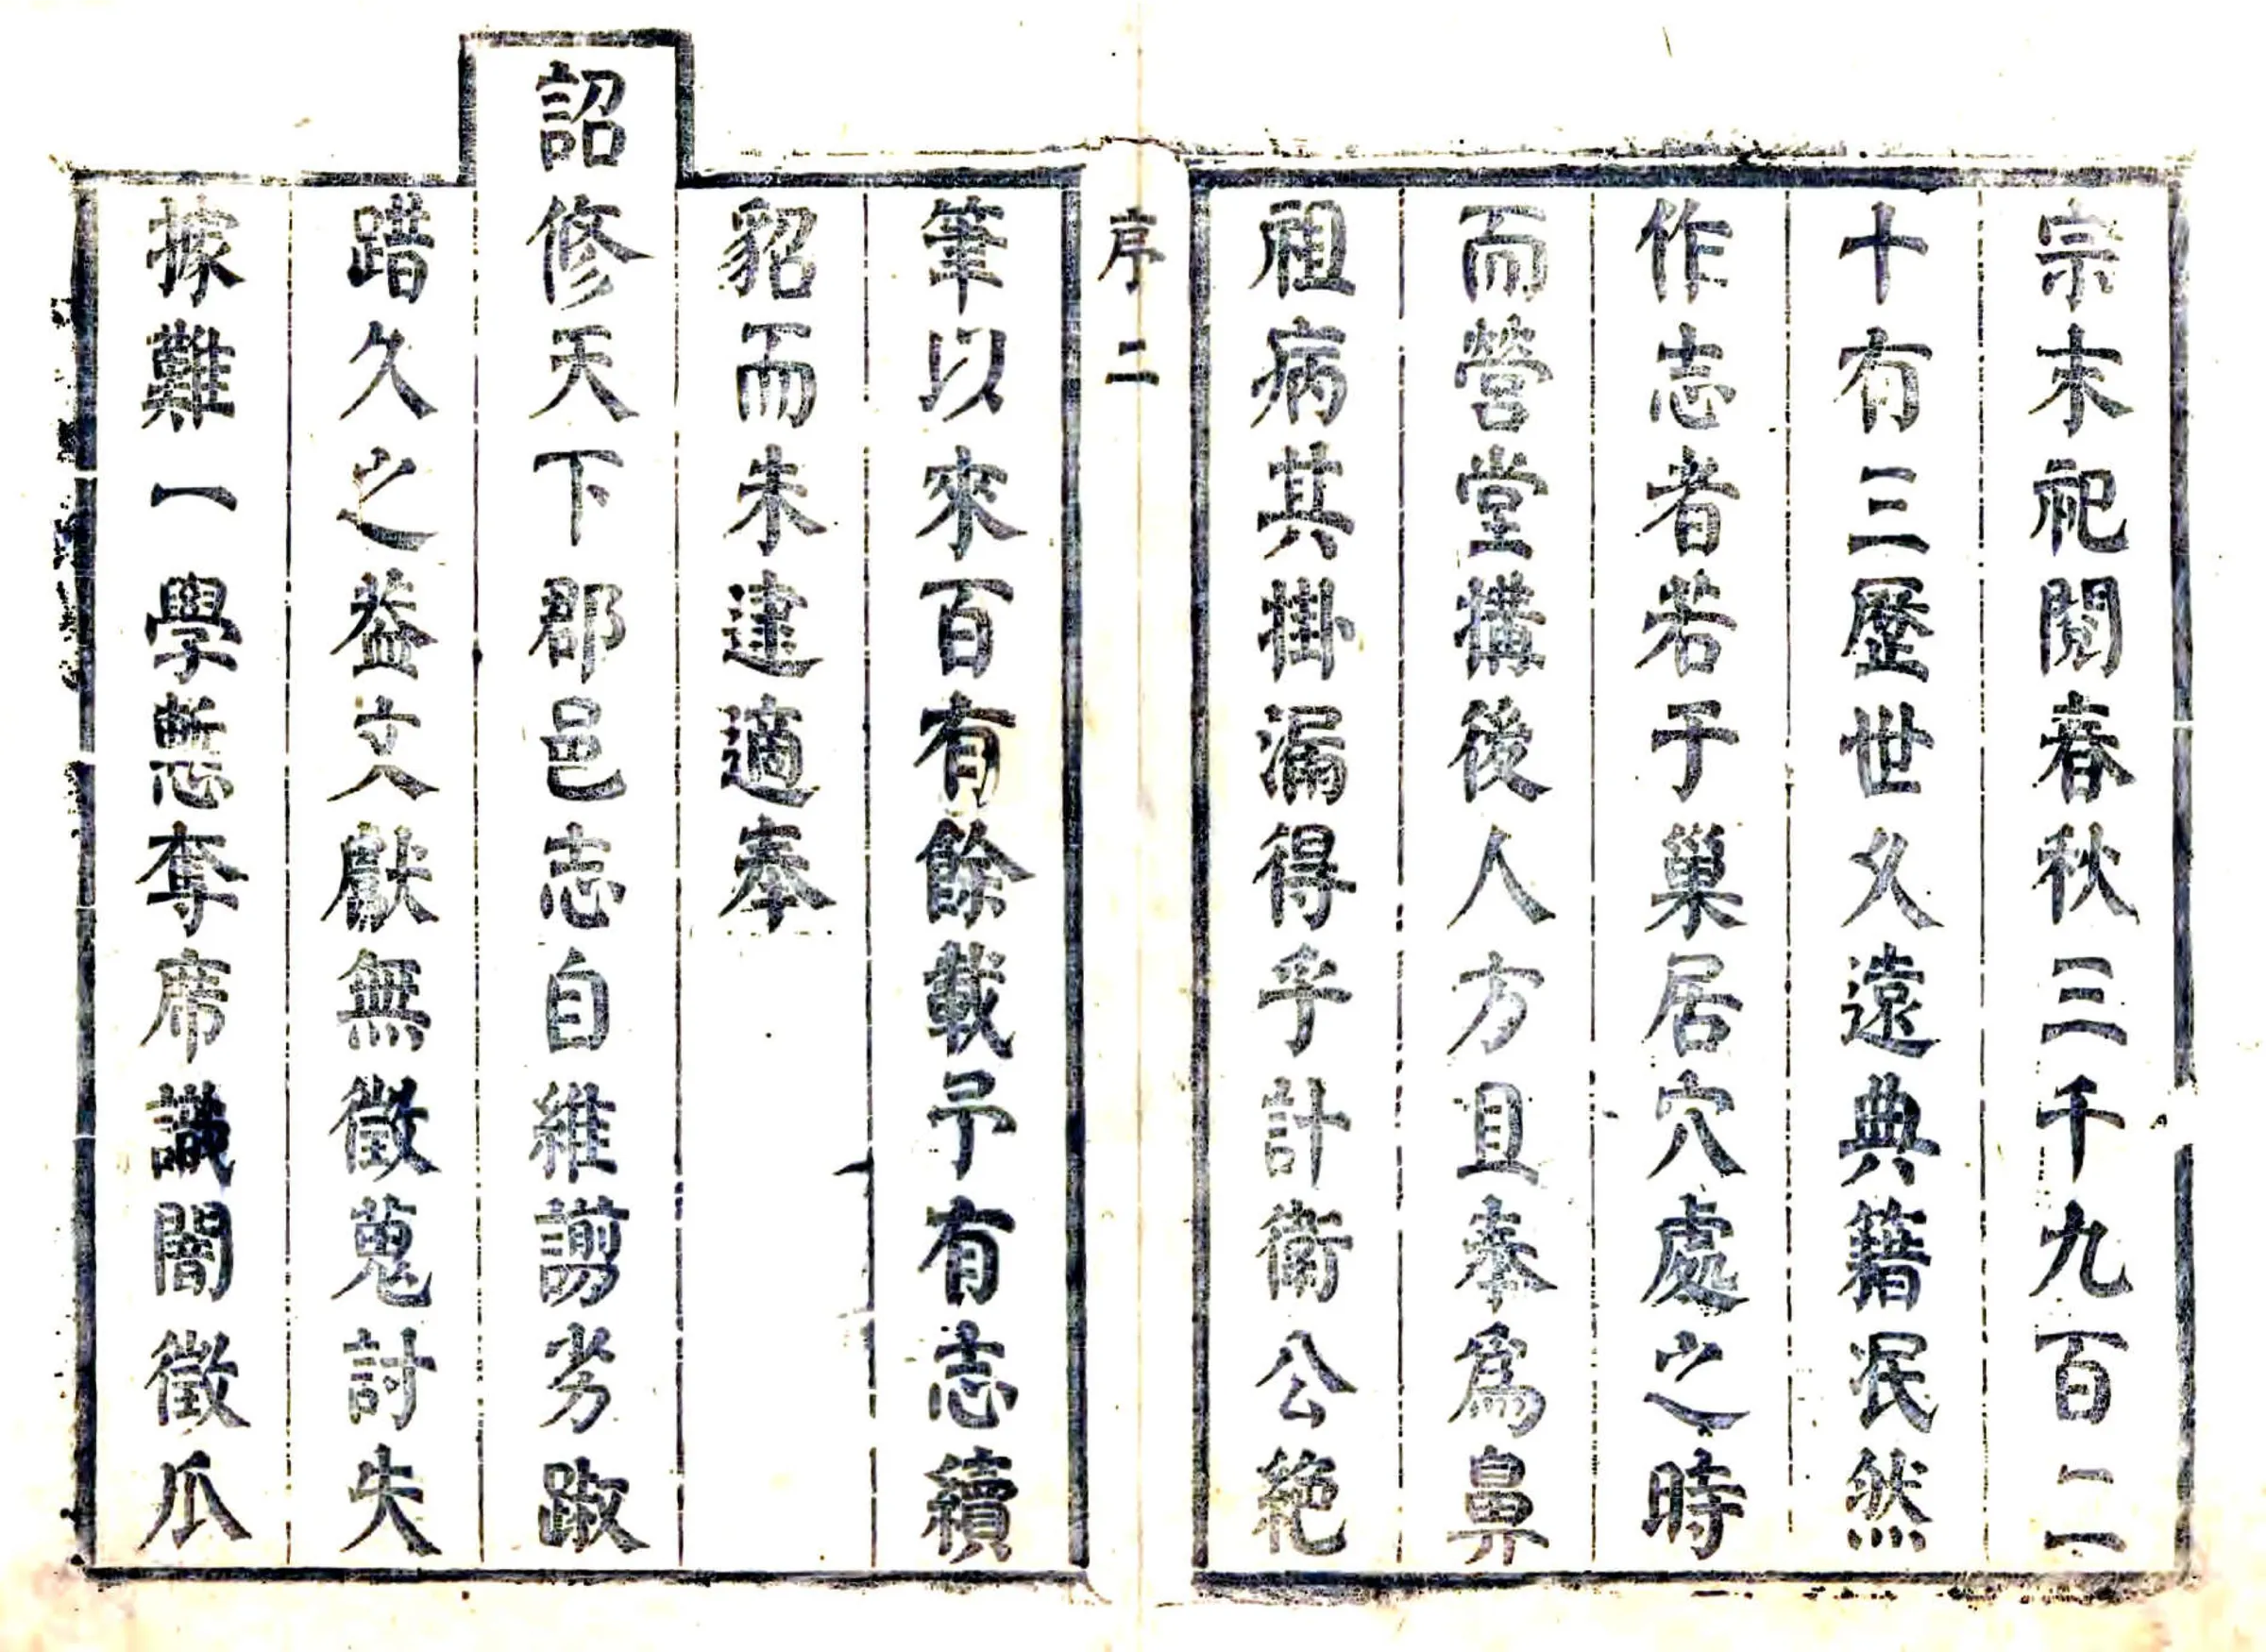 宗末祀閱春秋三千九百二
十有三歷世久遠典籍泯然
作志者若于巢居穴處之時
而營堂構後人方且奉爲鼻
祖病其掛漏得乎計衛公絶
序二
筆以來百有餘載予有志續
貂而未逮適奉
詔修天下郡邑志自維謭劣踧
踖久之益文獻無徵蒐討失
據難一學慙奪席識闇徵瓜